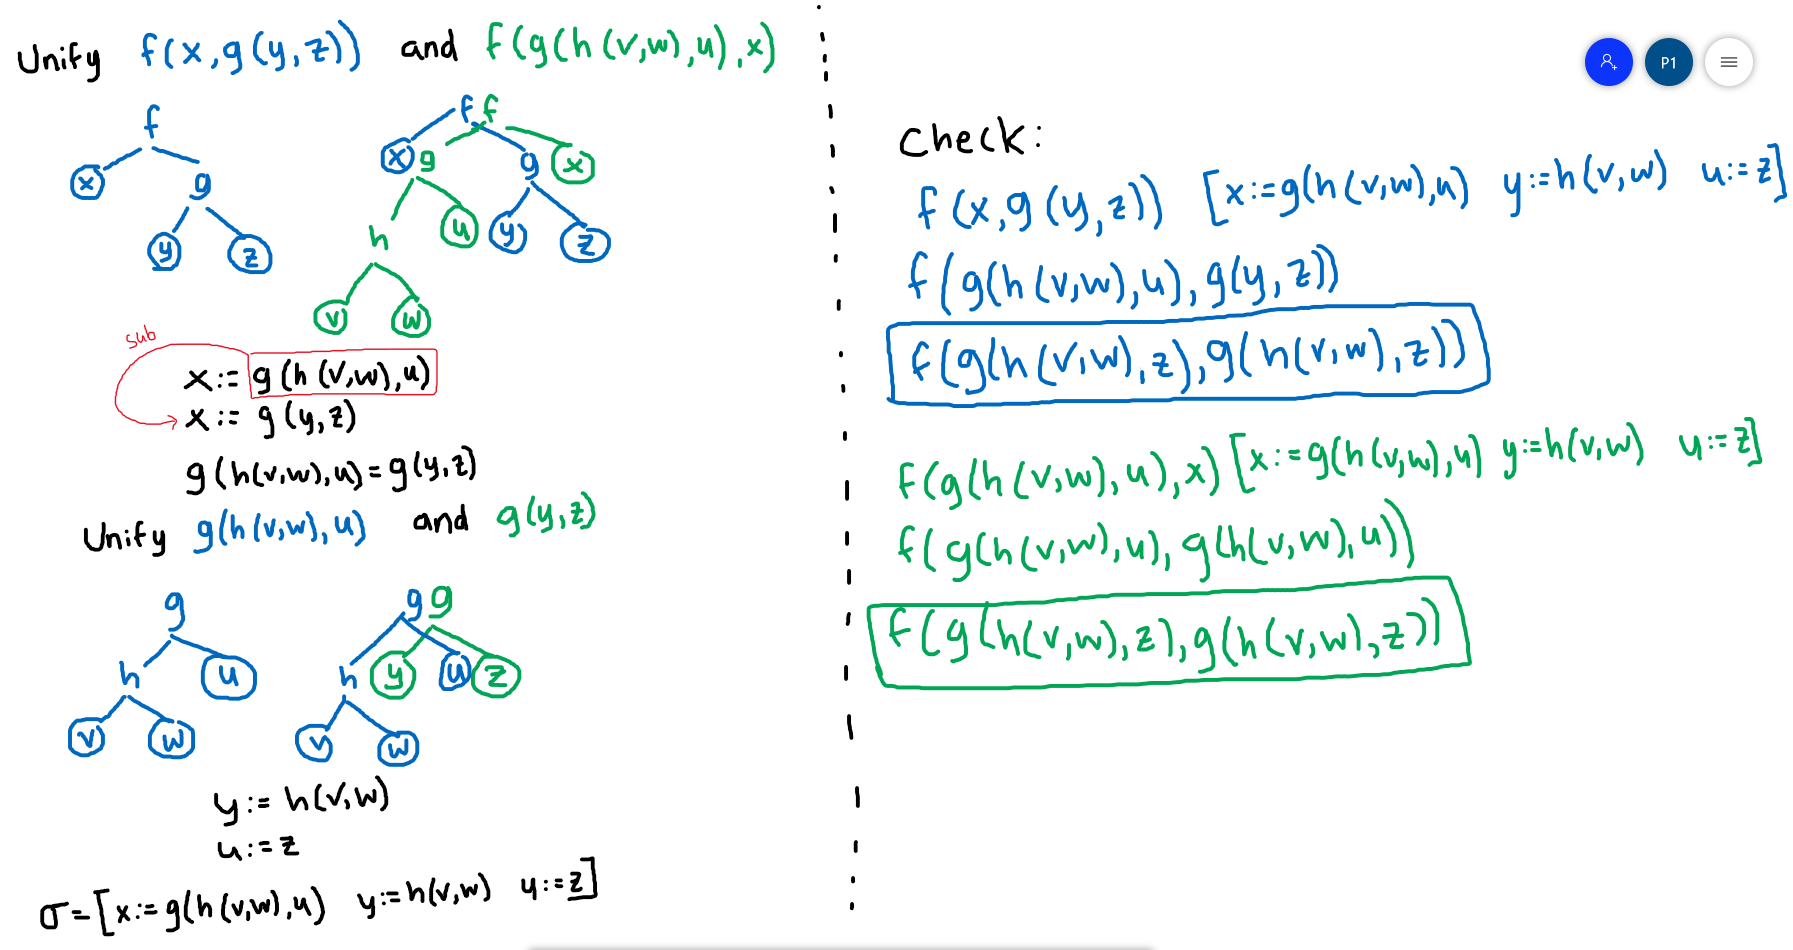 Unify f(x,g(y,z)) and f(g(h(v,w),u),x)
f f f
x g x g g x
y z h u y z
v w
sub
x:= g(h(v,w),u)
x:= g(y,z)
g(h(v,w),u)=g(y,z)
Unify g(h(v,w),u) and g(y,z)
g g g
h u h y u z
v w v w
y:= h(v,w)
u:=z
σ=[x:=g(h(v,w),u) y:=h(v,w) u:=z]
Check:
f(x,g(y,z)) [x:=g(h(v,w),u) y:=h(v,w) u:=z]
f(g(h(v,w),u),g(y,z))
f(g(h(v,w),z),g(h(v,w),z))
f(g(h(v,w),u),x) [x:=g(h(v,w),u) y:=h(v,w) u:=z]
f(g(h(v,w),u),g(h(v,w),u))
f(g(h(v,w),z),g(h(v,w),z))
P1